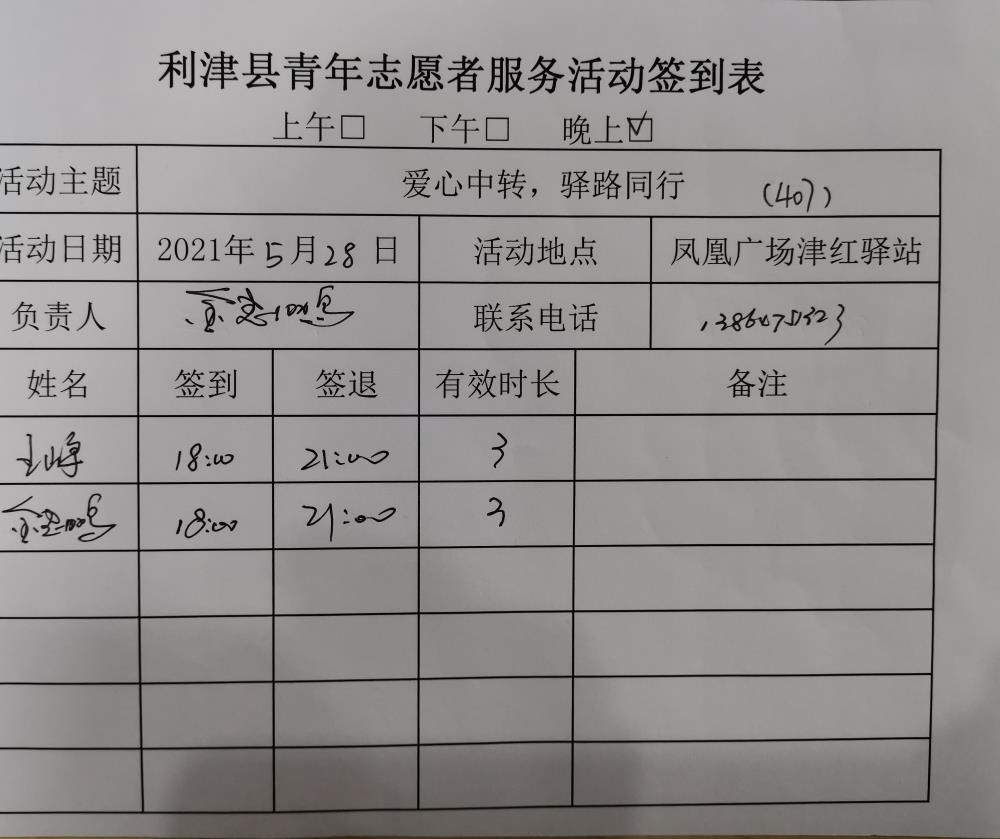 利津县青年志愿者服务活动签到表
上午□ 下午□ 晚上☑
活动主题 爱心中转，驿路同行 (407)
活动日期 2021年5月28日 活动地点 凤凰广场津红驿站
负责人 联系电话
姓名 签到 签退 有效时长 备注
王峰 18:00 21:00 3
18:00 21:00 3